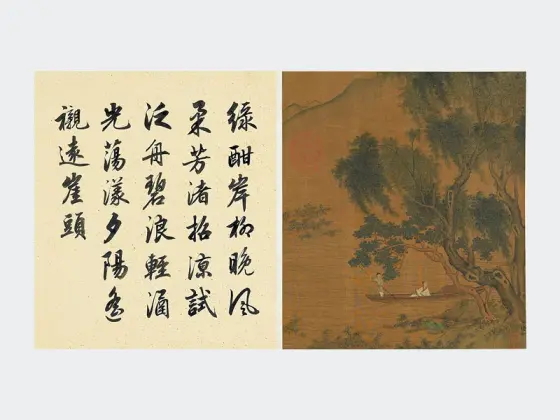 綠酣岸柳晚風
柔芳渚招涼試
泛舟碧浪輕涵
光蕩漾夕陽遙
襯遠崖頭